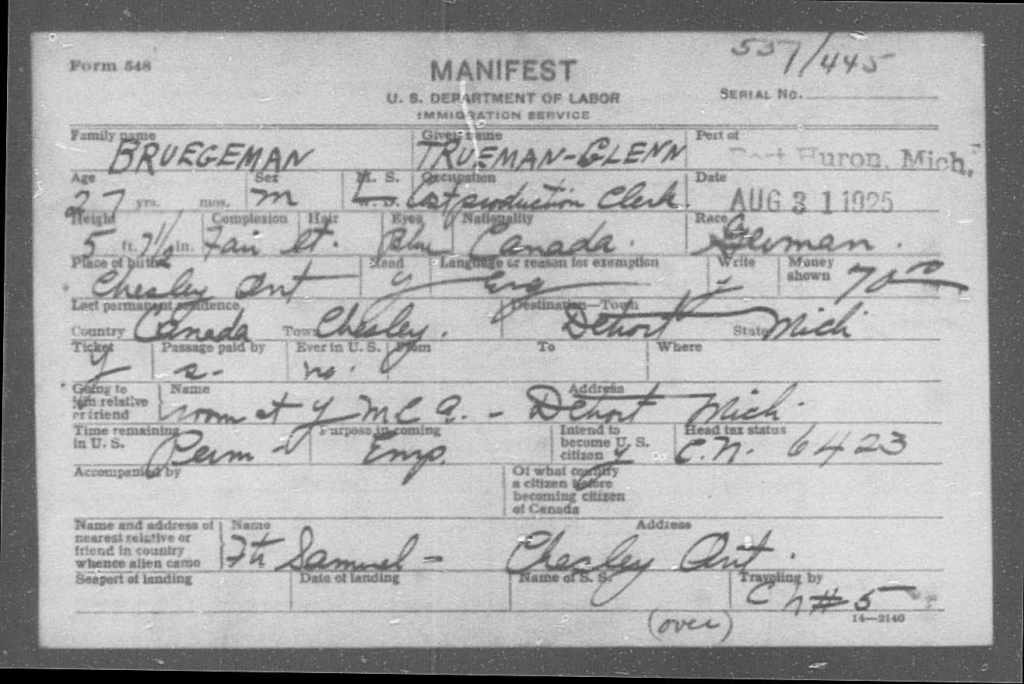 537/445
Form 548
MANIFEST
U. S. DEPARTMENT OF LABOR
IMMIGRATION SERVICE
SERIAL No.
Family name Given name Port of
BRUEGEMAN TRUEMAN-GLENN Port Huron, Mich.
Age Sex M. S. Occupation Date
27 yrs. mos. m Cst production Clerk. AUG 31 1925
Height Complexion Hair Eyes Nationality Race
5 ft. 7½ in. Fair Lt. Blu Canada. German.
Place of birth Read Language or reason for exemption Write Money shown
Chesley Ont y Eng y 70
Last permanent residence Destination—Town
Country Canada Town Chesley. Detroit State Mich
Ticket Passage paid by Ever in U. S. From To Where
y s- no.
Going to join relative or friend Name Address
room at YMCA. - Detroit Mich.
Time remaining in U. S. Purpose in coming Intend to become U. S. citizen Head tax status
Perm Emp. y C.N. 6423
Accompanied by Of what country a citizen before becoming citizen of Canada
Name and address of nearest relative or friend in country whence alien came Name Address
Fth Samuel - Chesley Ont.
Seaport of landing Date of landing Name of S. S. Traveling by
C N #5
14—2140
(over)